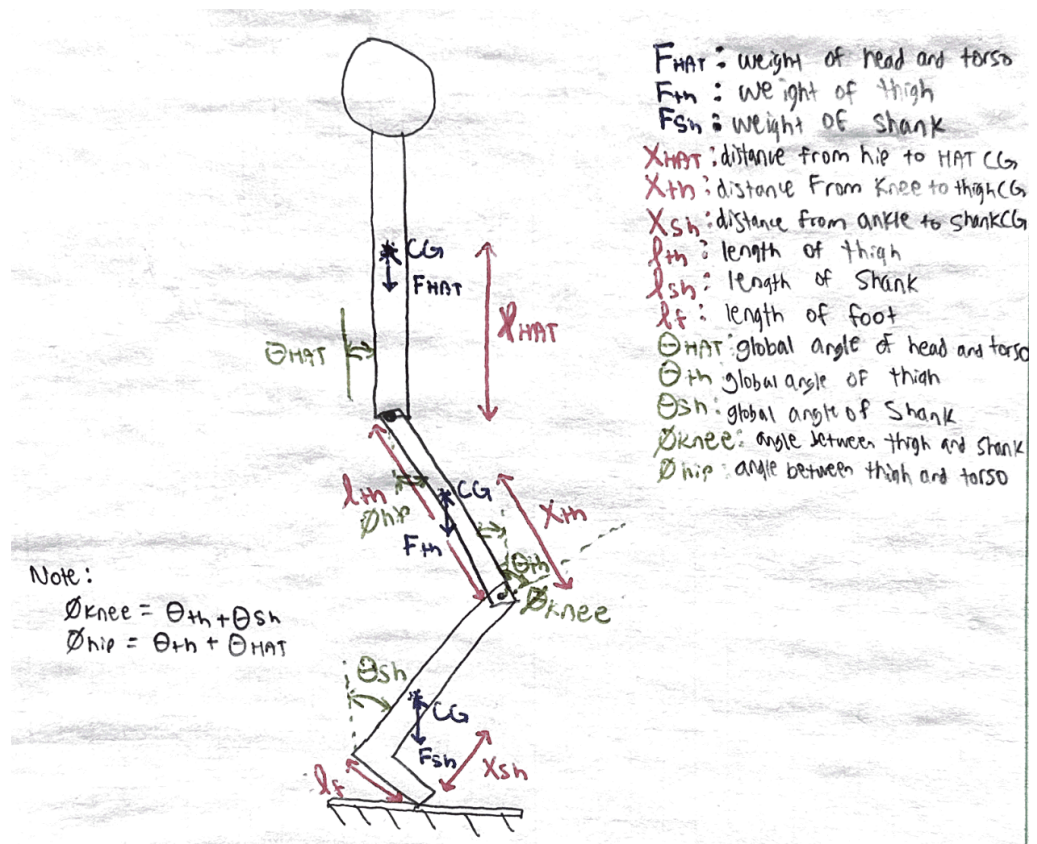 F_HAT : weight of head and torso
F_th : weight of thigh
F_sh : weight of shank
X_HAT : distance from hip to HAT CG
X_th : distance From Knee to thigh CG
X_sh : distance from ankle to shank CG
l_th : length of thigh
l_sh : length of Shank
l_f : length of foot
Θ_HAT : global angle of head and torso
Θ_th : global angle of thigh
Θ_sh : global angle of Shank
Ø_knee : angle between thigh and shank
Ø_hip : angle between thigh and torso
CG
F_HAT
X_HAT
Θ_HAT
l_th
Ø_hip
CG
F_th
X_th
Θ_th
Ø_knee
Note:
Ø_knee = Θ_th + Θ_sh
Ø_hip = Θ_th + Θ_HAT
Θ_sh
CG
F_sh
X_sh
l_f